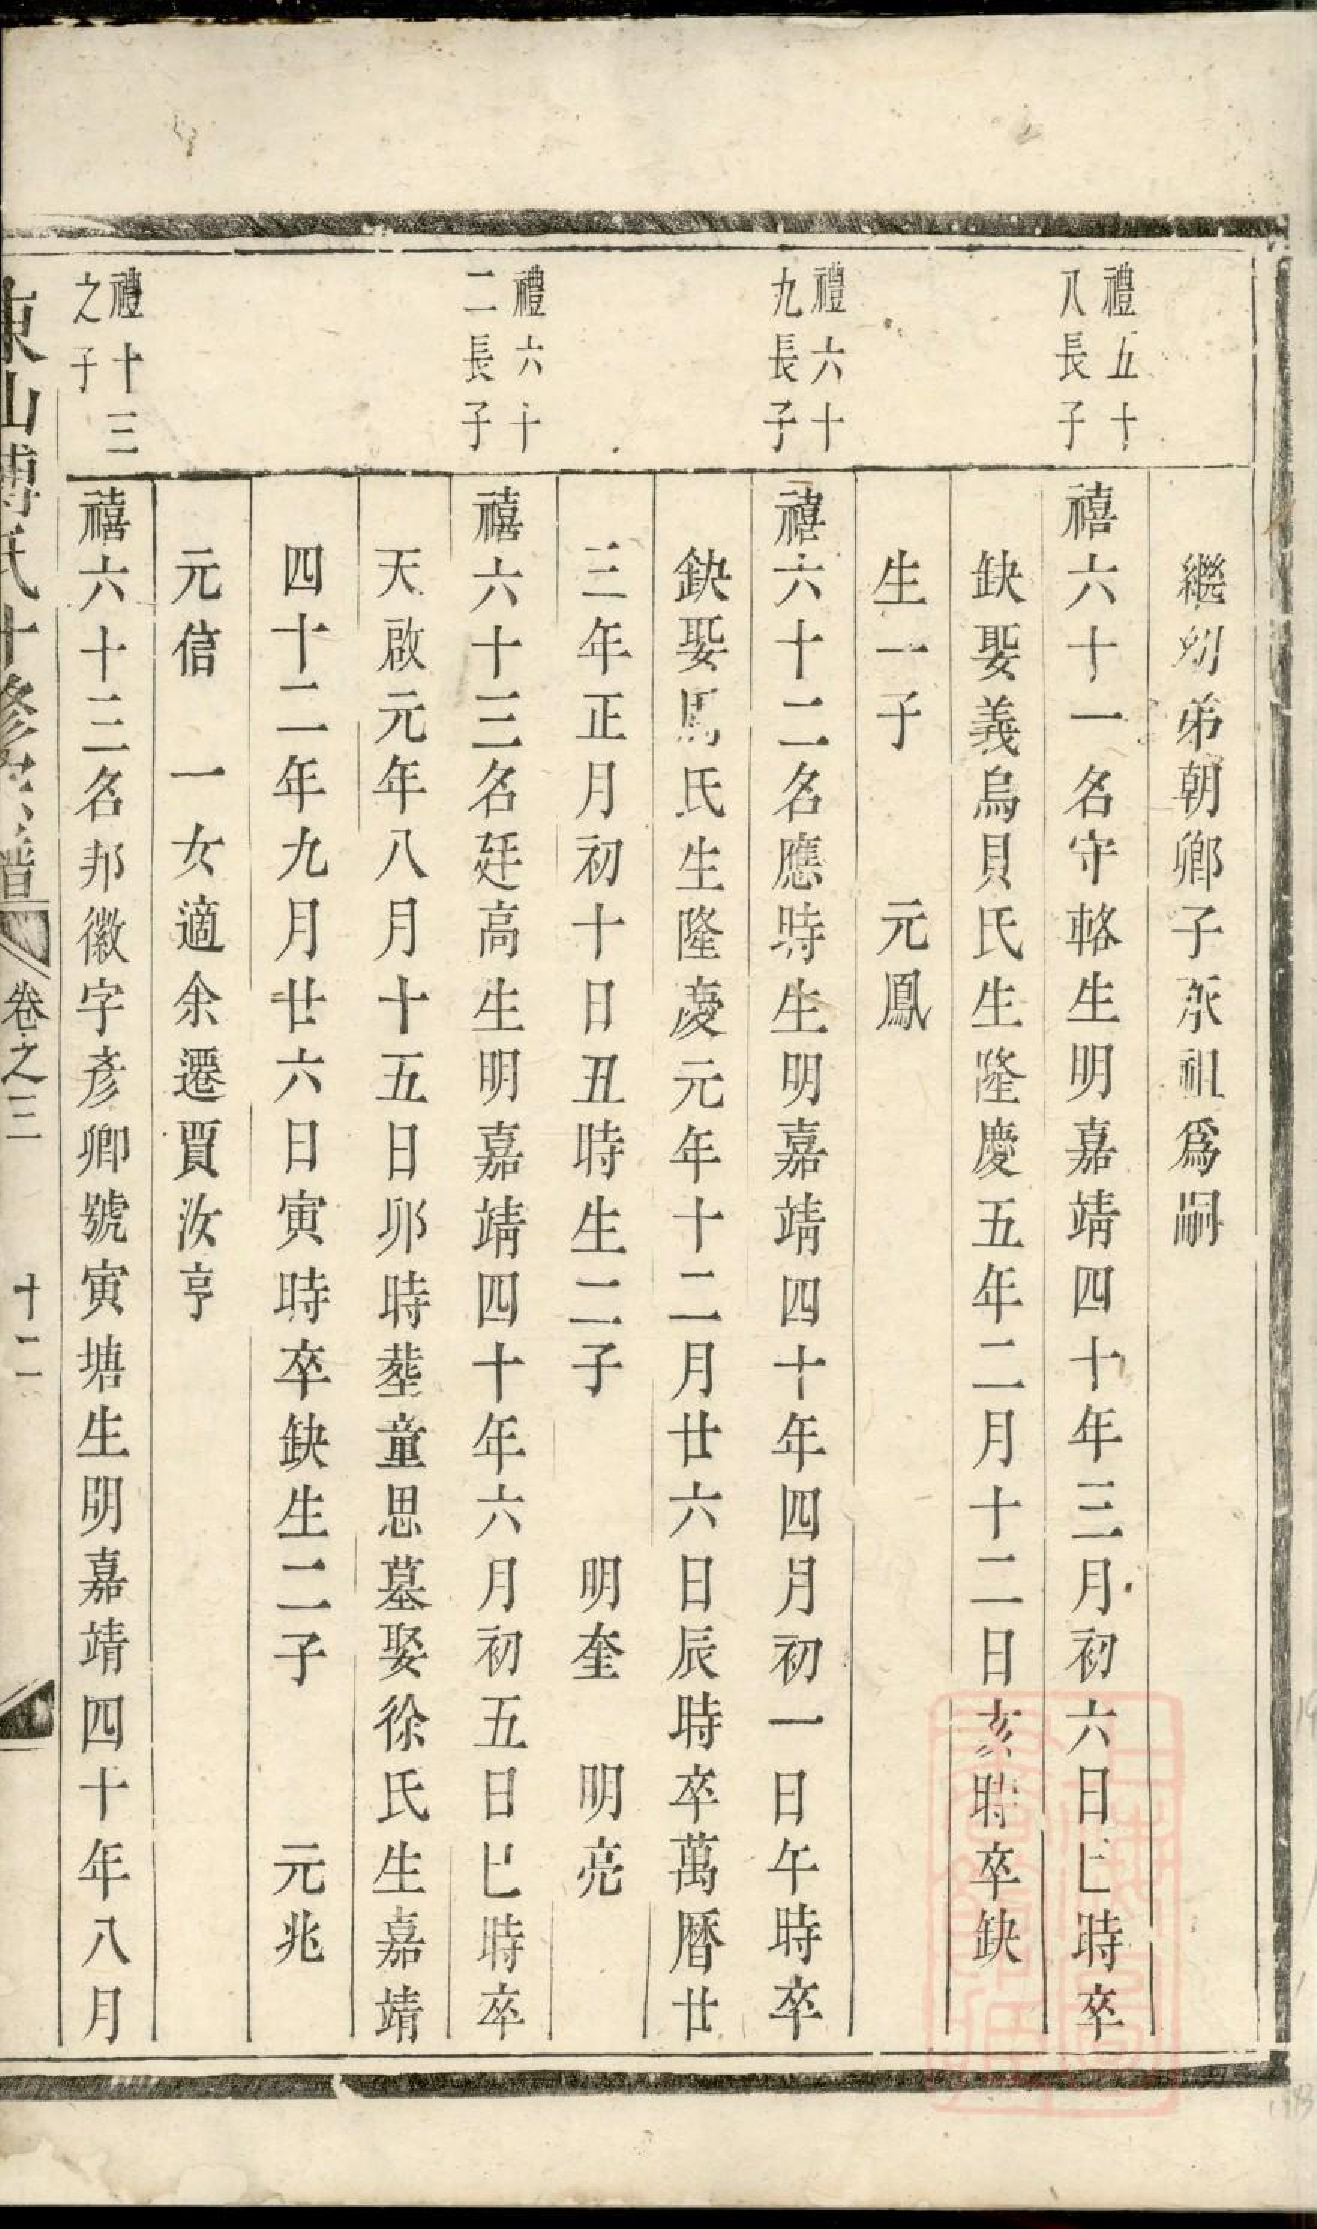 繼朔弟朝鄉子承祖爲嗣
禮五十
八長子
禧六十一名守輅生明嘉靖四十年三月初六日巳時卒
缺娶義烏貝氏生隆慶五年二月十二日亥時卒缺
生一子 元鳳
禮六十
九長子
禧六十二名應時生明嘉靖四十年四月初一日午時卒
缺娶馬氏生隆慶元年十二月廿六日辰時卒萬曆廿
三年正月初十日丑時生二子 明奎 明亮
禮六十
二長子
禧六十三名廷高生明嘉靖四十年六月初五日巳時卒
天啟元年八月十五日卯時塟童思墓娶徐氏生嘉靖
四十二年九月廿六日寅時卒缺生二子 元兆
元信 一女適余遷賈汝亨
禮十三
之子
禧六十三名邦徽字彥卿號寅塘生明嘉靖四十年八月
東山傅氏十修宗譜 卷之三 十二